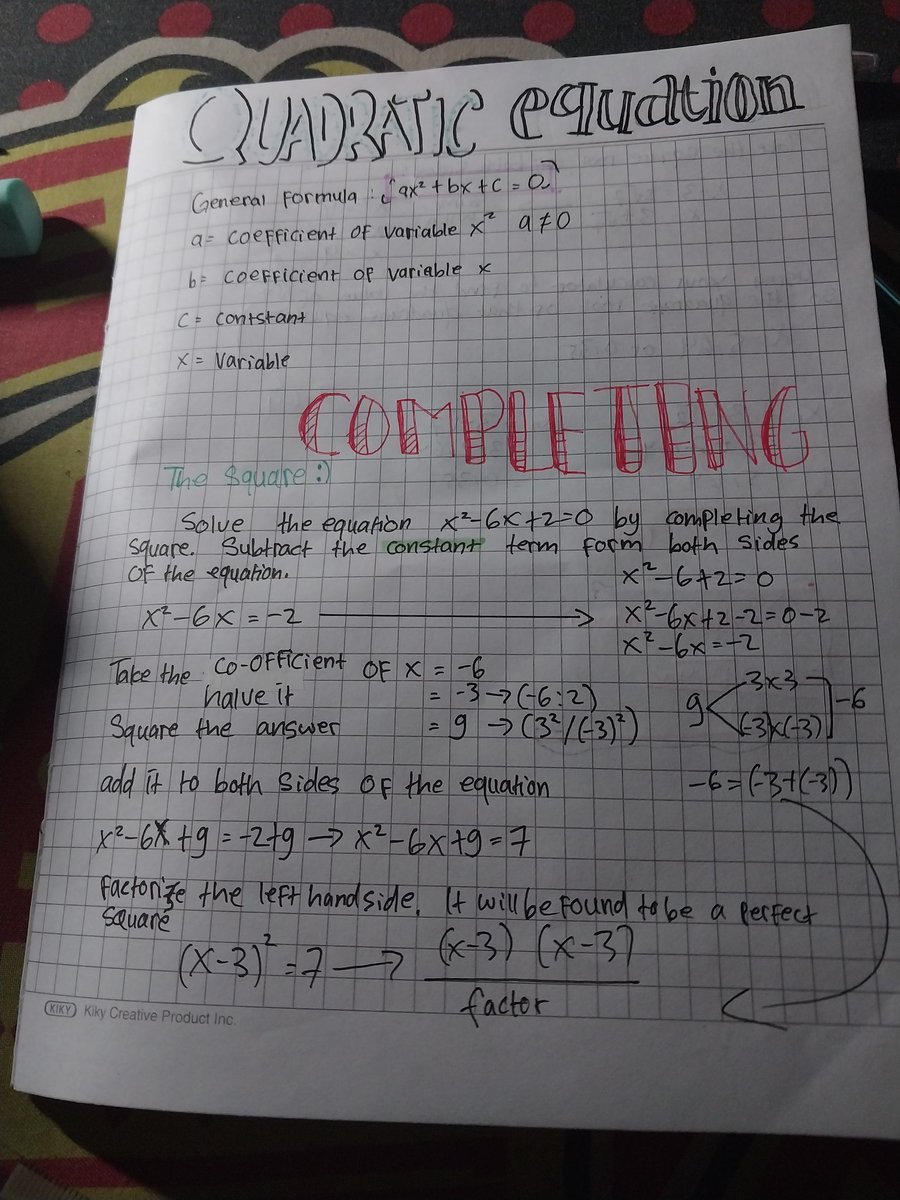 QUADRATIC equation
General Formula : {ax² + bx + c = 0}
a = coefficient of variable x² a ≠ 0
b = coefficient of variable x
c = contstant
x = Variable
COMPLETING
The Square :)
Solve the equation x²-6x+2=0 by completing the
square. Subtract the constant term form both sides
of the equation.
x²-6+2=0
x²-6x=-2 ⟶ x²-6x+2-2=0-2
x²-6x=-2
Take the co-officient of x = -6
halve it = -3 → (-6:2)
Square the answer = 9 → (3²/(-3)²)
9 < 3x3
(-3)x(-3) ] -6
add it to both sides of the equation
-6=(-3+(-3))
x²-6x+9=-2+9 → x²-6x+9=7
factorize the left handside. It will be found to be a perfect
square
(x-3)²=7 ⟶ (x-3) (x-3)
factor
KIKY Kiky Creative Product Inc.